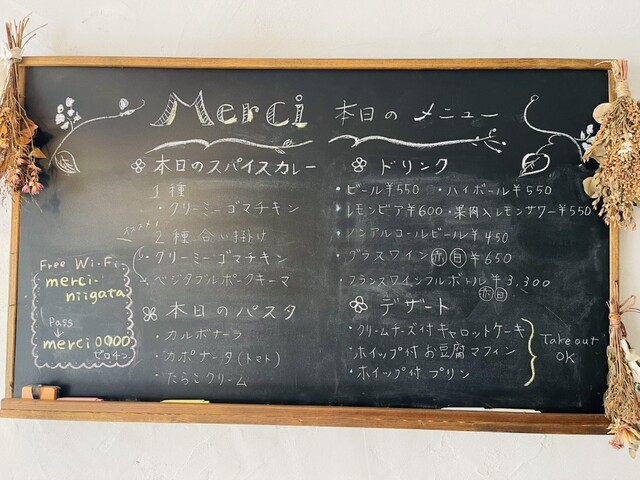 Merci 本日のメニュー
❀本日のスパイスカレー
1種
・クリーミーゴマチキン
オススメ!
2種合い掛け
・クリーミーゴマチキン
・ベジタブルポークキーマ
❀本日のパスタ
・カルボナーラ
・カポナータ(トマト)
・たらこクリーム
Free Wi-Fi
merci-
niigata
Pass
↓
merci0000
ゼロ4コ
❀ドリンク
・ビール¥550 ・ハイボール¥550
・レモンビア¥600・果肉入レモンサワー¥550
・ノンアルコールビール¥450
・グラスワイン 赤 白 ¥650
・フランスワインフルボトル¥3,300
赤 白
❀デザート
・クリームチーズ付キャロットケーキ
・ホイップ付お豆腐マフィン
・ホイップ付プリン
Take out
OK